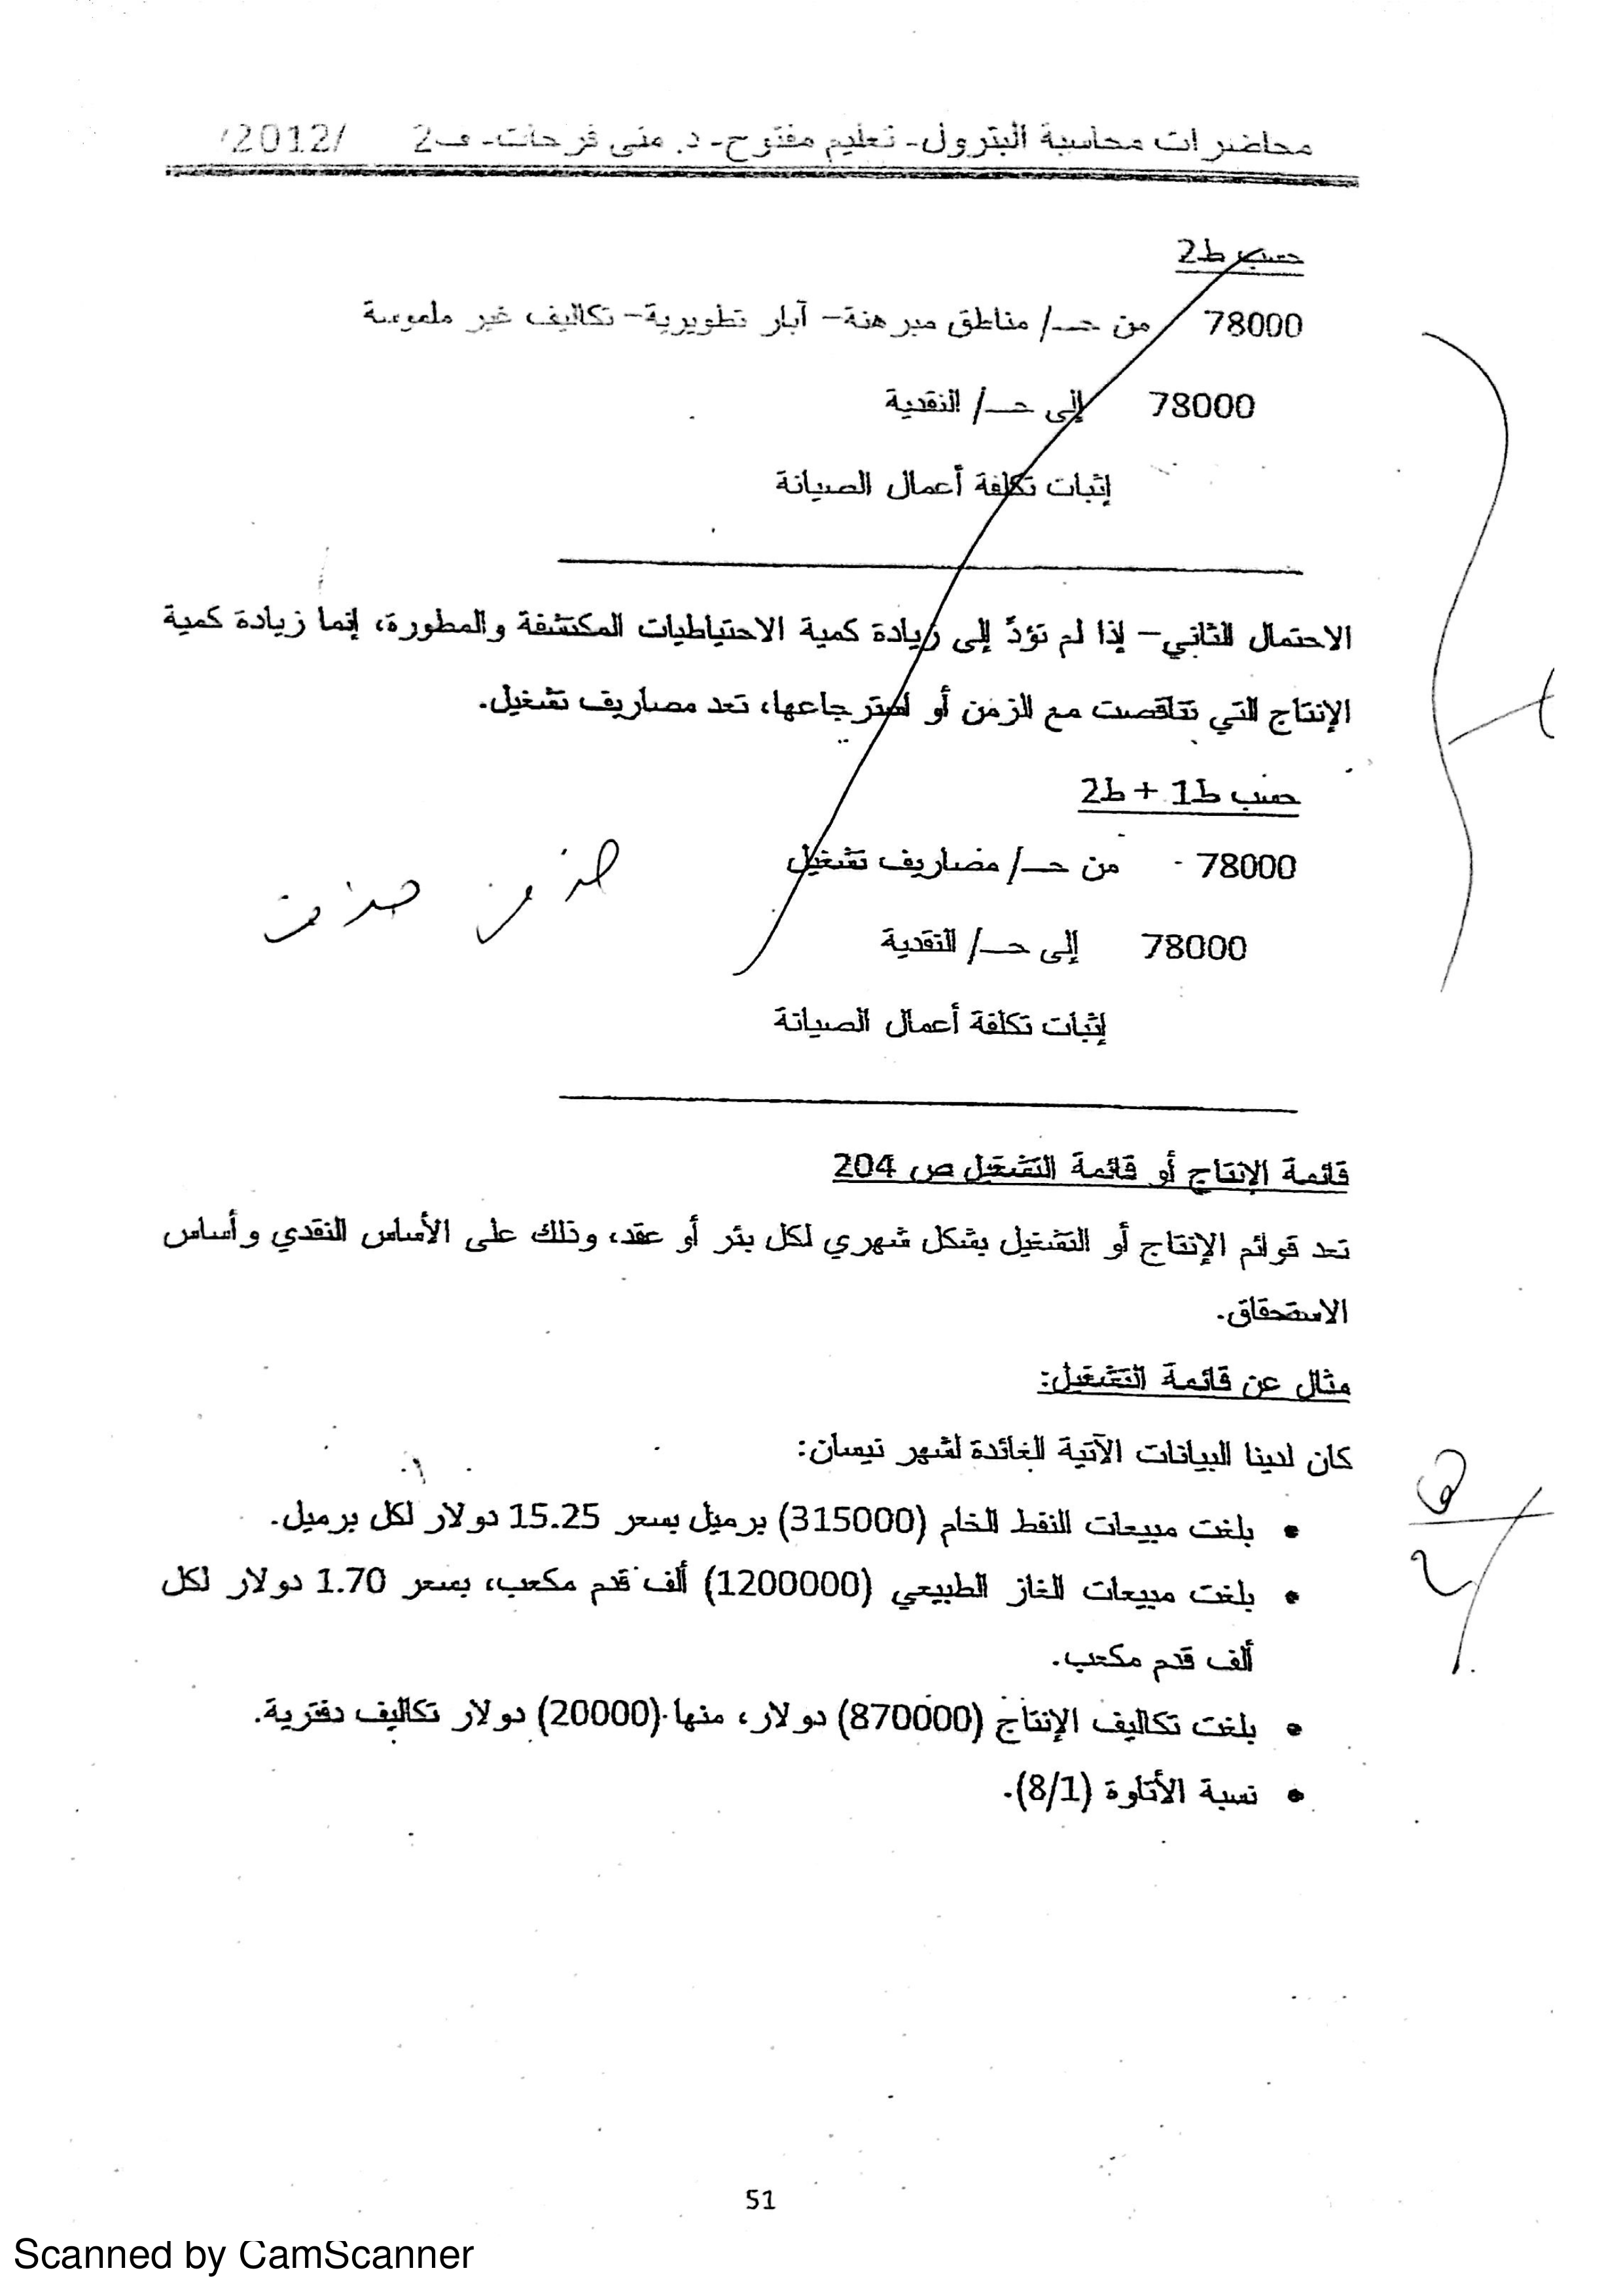 محاضرات محاسبة البترول- تعليم مفتوح- د. منى فرحات- ف2 /2012/
حسب ط2
78000 من حـ/ مناطق مبرهنة- آبار تطويرية- تكاليف غير ملموسة
78000 إلى حـ/ النقدية
إثبات تكلفة أعمال الصيانة
الاحتمال الثاني- إذا لم تؤدِّ إلى زيادة كمية الاحتياطيات المكتشفة والمطورة، إنما زيادة كمية
الإنتاج التي تناقصت مع الزمن أو استرجاعها، تعد مصاريف تشغيل.
حسب ط1 + ط2
78000 من حـ/ مصاريف تشغيل
حذف
78000 إلى حـ/ النقدية
إثبات تكلفة أعمال الصيانة
قائمة الإنتاج أو قائمة التشغيل ص 204
تعد قوائم الإنتاج أو التشغيل بشكل شهري لكل بئر أو عقد، وذلك على الأساس النقدي وأساس
الاستحقاق.
مثال عن قائمة التشغيل:
كان لدينا البيانات الآتية العائدة لشهر نيسان:
• بلغت مبيعات النفط الخام (315000) برميل بسعر 15.25 دولار لكل برميل.
• بلغت مبيعات الغاز الطبيعي (1200000) ألف قدم مكعب، بسعر 1.70 دولار لكل
ألف قدم مكعب.
• بلغت تكاليف الإنتاج (870000) دولار، منها (20000) دولار تكاليف دفترية.
• نسبة الأتاوة (8/1).
51
Scanned by CamScanner